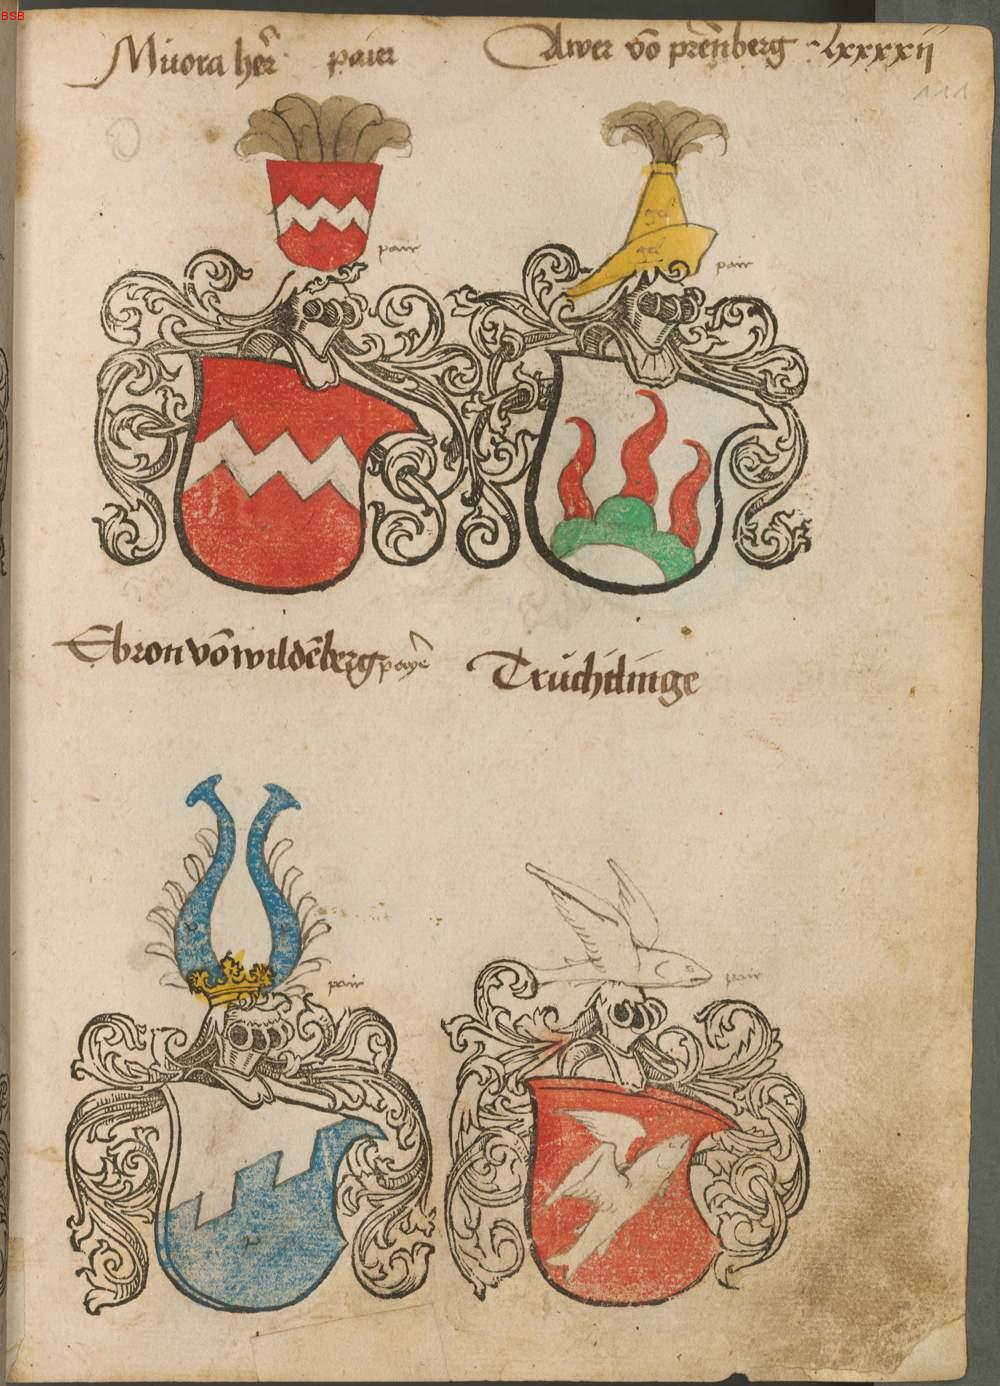 BSB
Miiora her̃ paier
Awer võ prẽnberg lxxxxij
111
pair
gel
gel
pair
Ebron võ wildẽberg payẽ
Trŭchtlinge
pair
pair